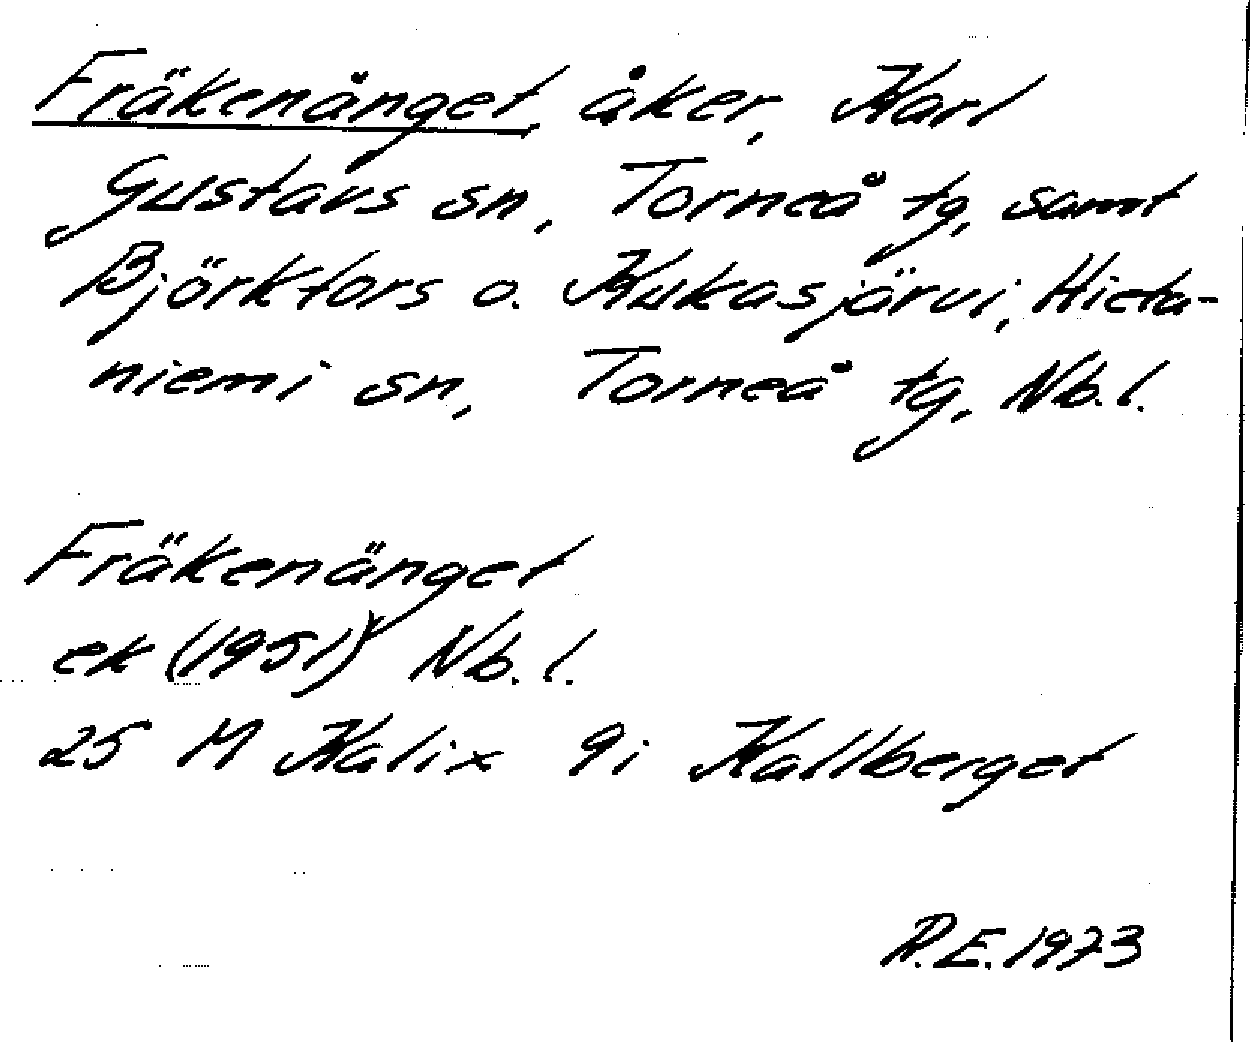 Fräkenänget, åker, Karl
Gustavs sn, Torneå tg, samt
Björkfors o. Kukasjärvi, Hieta-
niemi sn, Torneå tg, Nb.l.
Fräkenänget
ek (1951) Nb.l.
25 M Kalix 9i Kallberget
R.E. 1973